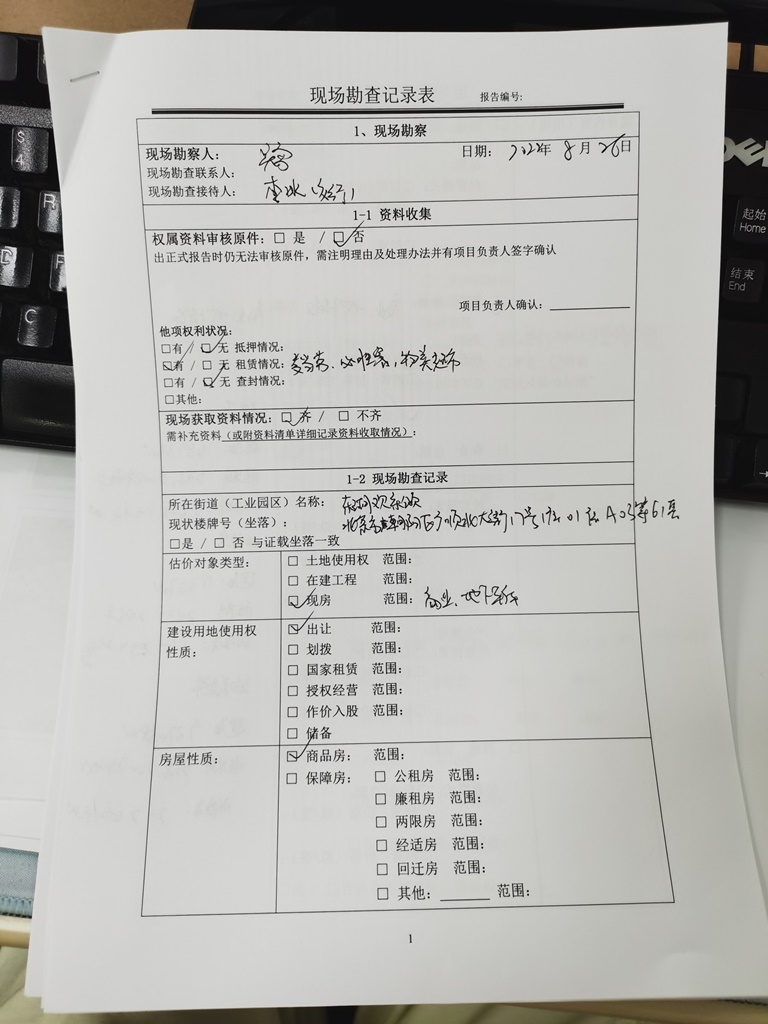 现场勘查记录表 报告编号:
1、现场勘察
现场勘察人: 日期: 年 8 月 26日
现场勘查联系人:
现场勘查接待人:
1-1 资料收集
权属资料审核原件:□ 是 / ☑ 否
出正式报告时仍无法审核原件,需注明理由及处理办法并有项目负责人签字确认
项目负责人确认:
他项权利状况:
□有 / ☑ 无 抵押情况:
☑有 / □ 无 租赁情况: 麦当劳、必胜客,物美超市
□有 / ☑ 无 查封情况:
□其他:
现场获取资料情况:☑ 齐 / □ 不齐
需补充资料(或附资料清单详细记录资料收取情况):
1-2 现场勘查记录
所在街道(工业园区)名称:
现状楼牌号(坐落):
□是 / □ 否 与证载坐落一致
估价对象类型: □ 土地使用权 范围:
□ 在建工程 范围:
☑ 现房 范围: 商业、地下
建设用地使用权 ☑ 出让 范围:
性质: □ 划拨 范围:
□ 国家租赁 范围:
□ 授权经营 范围:
□ 作价入股 范围:
□ 储备
房屋性质: ☑ 商品房: 范围:
□ 保障房: □ 公租房 范围:
□ 廉租房 范围:
□ 两限房 范围:
□ 经适房 范围:
□ 回迁房 范围:
□ 其他: 范围:
1
$
4
R
DELL
起始
Home
结束
End